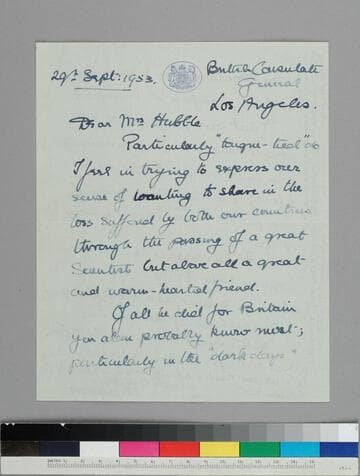 29th Sept: 1953.
British Consulate
General
Los Angeles.
Dear Mrs Hubble
Particularly "tongue-tied" do
I feel in trying to express our
sense of wanting to share in the
loss suffered by both our countries
through the passing of a great
Scientist but above all a great
and warm-hearted friend.
Of all he did for Britain
you alone probably know most;
particularly in the "dark days"